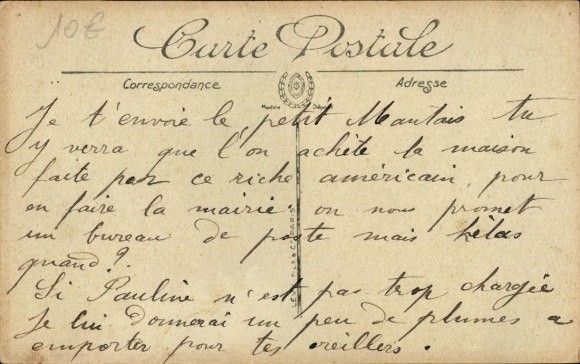 10€
Carte Postale
Correspondance
Adresse
Modèle Déposé
Je t'envoie le petit Mantais tu
y verra que l'on achète la maison
faite par ce riche américain, pour
en faire la mairie. on nous promet
un bureau de poste mais hélas
quand ?
Si Pauline n'est pas trop chargée
je lui donnerai un peu de plumes a
emporter pour tes oreillers.